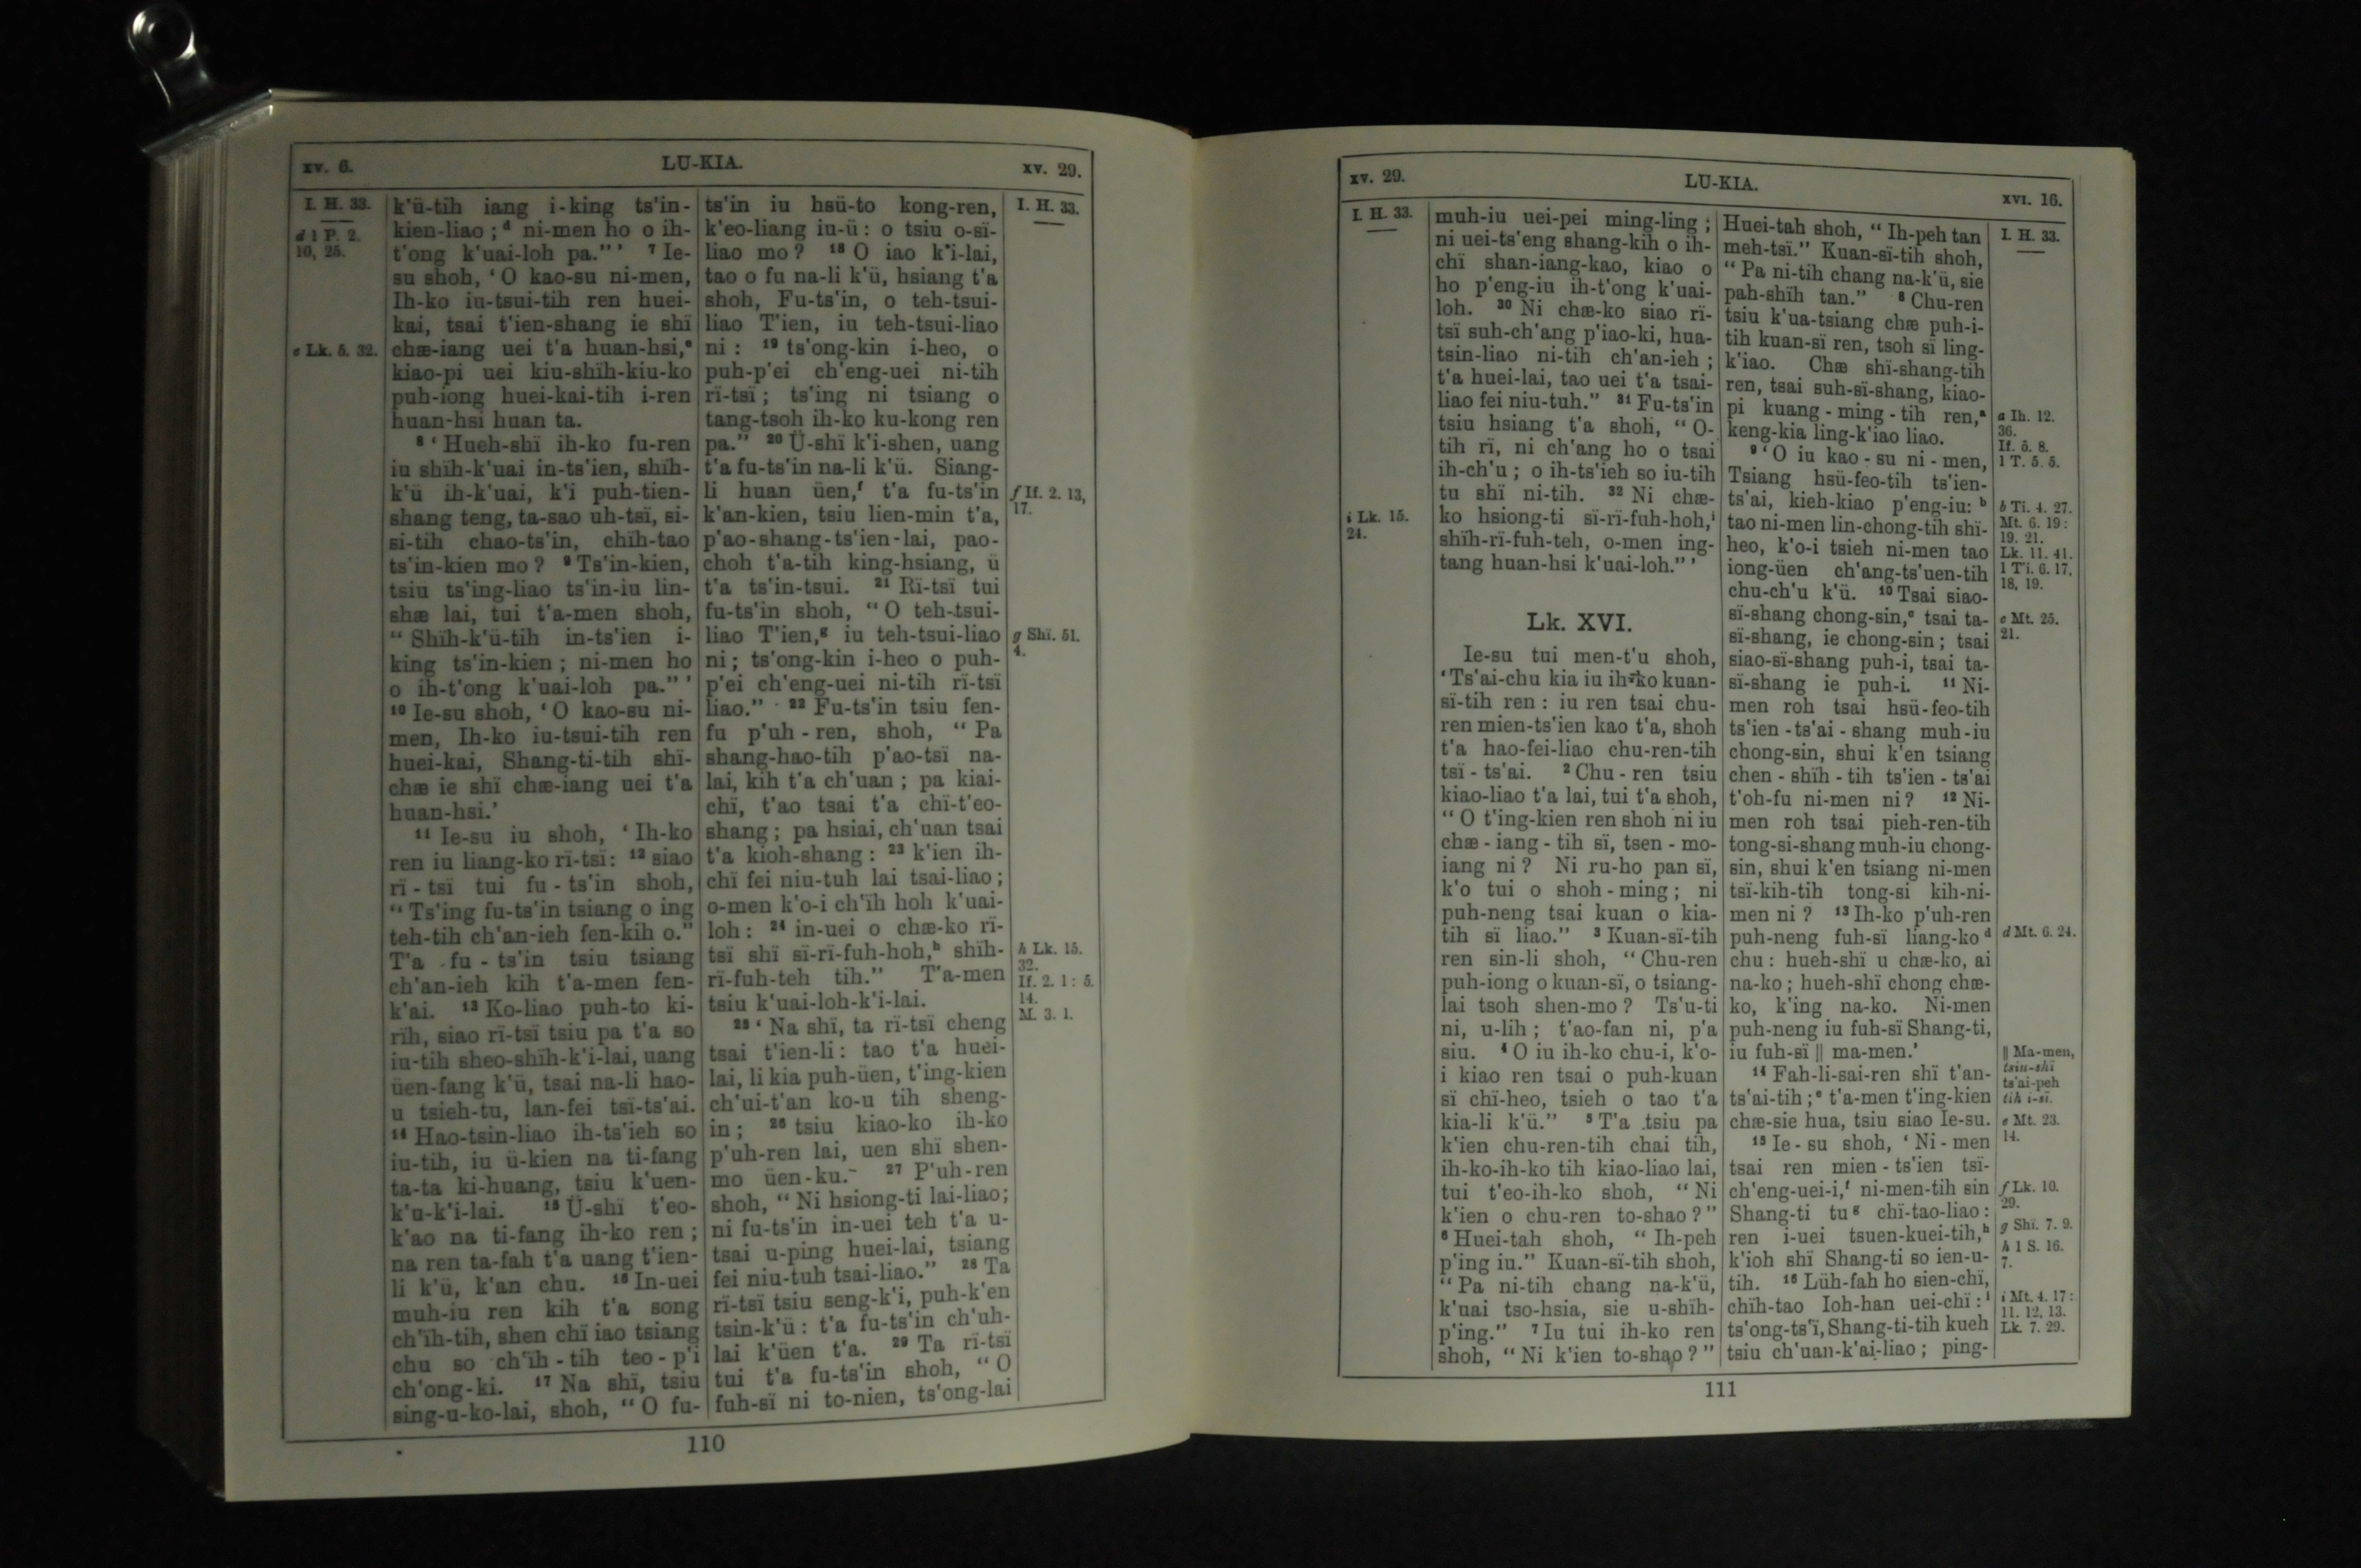 xv. 6.
LU-KIA.
xv. 29.
I. H. 33.
d 1 P. 2.
10, 25.
e Lk. 5. 32.
k'ü-tih iang i-king ts'in-
kien-liao ; ᵈ ni-men ho o ih-
t'ong k'uai-loh pa." ' ⁷ Ie-
su shoh, ‘ O kao-su ni-men,
Ih-ko iu-tsui-tih ren huei-
kai, tsai t'ien-shang ie shï
chæ-iang uei t'a huan-hsi,ᵉ
kiao-pi uei kiu-shïh-kiu-ko
puh-iong huei-kai-tih i-ren
huan-hsi huan ta.
⁸ ‘ Hueh-shï ih-ko fu-ren
iu shïh-k'uai in-ts'ien, shïh-
k'ü ih-k'uai, k'i puh-tien-
shang teng, ta-sao uh-tsï, si-
si-tih chao-ts'in, chïh-tao
ts'in-kien mo ? ⁹ Ts'in-kien,
tsiu ts'ing-liao ts'in-iu lin-
shæ lai, tui t'a-men shoh,
“ Shïh-k'ü-tih in-ts'ien i-
king ts'in-kien ; ni-men ho
o ih-t'ong k'uai-loh pa." '
¹⁰ Ie-su shoh, ‘ O kao-su ni-
men, Ih-ko iu-tsui-tih ren
huei-kai, Shang-ti-tih shï-
chæ ie shï chæ-iang uei t'a
huan-hsi.'
¹¹ Ie-su iu shoh, ‘ Ih-ko
ren iu liang-ko rï-tsï : ¹² siao
rï - tsï tui fu - ts'in shoh,
“ Ts'ing fu-ts'in tsiang o ing
teh-tih ch'an-ieh fen-kih o."
T'a fu - ts'in tsiu tsiang
ch'an-ieh kih t'a-men fen-
k'ai. ¹³ Ko-liao puh-to ki-
rïh, siao rï-tsï tsiu pa t'a so
iu-tih sheo-shïh-k'i-lai, uang
üen-fang k'ü, tsai na-li hao-
u tsieh-tu, lan-fei tsï-ts'ai.
¹⁴ Hao-tsin-liao ih-ts'ieh so
iu-tih, iu ü-kien na ti-fang
ta-ta ki-huang, tsiu k'uen-
k'u-k'i-lai. ¹⁵ Ü-shï t'eo-
k'ao na ti-fang ih-ko ren ;
na ren ta-fah t'a uang t'ien-
li k'ü, k'an chu. ¹⁶ In-uei
muh-iu ren kih t'a song
ch'ïh-tih, shen chï iao tsiang
chu so ch'ïh - tih teo - p'i
ch'ong-ki. ¹⁷ Na shï, tsiu
sing-u-ko-lai, shoh, “ O fu-
ts'in iu hsü-to kong-ren,
k'eo-liang iu-ü : o tsiu o-sï-
liao mo ? ¹⁸ O iao k'i-lai,
tao o fu na-li k'ü, hsiang t'a
shoh, Fu-ts'in, o teh-tsui-
liao T'ien, iu teh-tsui-liao
ni : ¹⁹ ts'ong-kin i-heo, o
puh-p'ei ch'eng-uei ni-tih
rï-tsï ; ts'ing ni tsiang o
tang-tsoh ih-ko ku-kong ren
pa." ²⁰ Ü-shï k'i-shen, uang
t'a fu-ts'in na-li k'ü. Siang-
li huan üen,ᶠ t'a fu-ts'in
k'an-kien, tsiu lien-min t'a,
p'ao-shang-ts'ien-lai, pao-
choh t'a-tih king-hsiang, ü
t'a ts'in-tsui. ²¹ Rï-tsï tui
fu-ts'in shoh, “ O teh-tsui-
liao T'ien,ᵍ iu teh-tsui-liao
ni ; ts'ong-kin i-heo o puh-
p'ei ch'eng-uei ni-tih rï-tsï
liao." ²² Fu-ts'in tsiu fen-
fu p'uh - ren, shoh, “ Pa
shang-hao-tih p'ao-tsï na-
lai, kih t'a ch'uan ; pa kiai-
chï, t'ao tsai t'a chï-t'eo-
shang ; pa hsiai, ch'uan tsai
t'a kioh-shang : ²³ k'ien ih-
chï fei niu-tuh lai tsai-liao ;
o-men k'o-i ch'ïh hoh k'uai-
loh : ²⁴ in-uei o chæ-ko rï-
tsï shï sï-rï-fuh-hoh,ʰ shïh-
rï-fuh-teh tih." T'a-men
tsiu k'uai-loh-k'i-lai.
²⁵ ‘ Na shï, ta rï-tsï cheng
tsai t'ien-li : tao t'a huei-
lai, li kia puh-üen, t'ing-kien
ch'ui-t'an ko-u tih sheng-
in ; ²⁶ tsiu kiao-ko ih-ko
p'uh-ren lai, uen shï shen-
mo üen-ku. ²⁷ P'uh-ren
shoh, “ Ni hsiong-ti lai-liao ;
ni fu-ts'in in-uei teh t'a u-
tsai u-ping huei-lai, tsiang
fei niu-tuh tsai-liao." ²⁸ Ta
rï-tsï tsiu seng-k'i, puh-k'en
tsin-k'ü : t'a fu-ts'in ch'uh-
lai k'üen t'a. ²⁹ Ta rï-tsï
tui t'a fu-ts'in shoh, “ O
fuh-sï ni to-nien, ts'ong-lai
I. H. 33.
f If. 2. 13,
17.
g Shï. 51.
4.
h Lk. 15.
32.
If. 2. 1 : 5.
14.
M. 3. 1.
110
xv. 29.
LU-KIA.
xvi. 16.
I. H. 33.
i Lk. 15.
24.
muh-iu uei-pei ming-ling ;
ni uei-ts'eng shang-kih o ih-
chï shan-iang-kao, kiao o
ho p'eng-iu ih-t'ong k'uai-
loh. ³⁰ Ni chæ-ko siao rï-
tsï suh-ch'ang p'iao-ki, hua-
tsin-liao ni-tih ch'an-ieh ;
t'a huei-lai, tao uei t'a tsai-
liao fei niu-tuh." ³¹ Fu-ts'in
tsiu hsiang t'a shoh, “ O-
tih rï, ni ch'ang ho o tsai
ih-ch'u ; o ih-ts'ieh so iu-tih
tu shï ni-tih. ³² Ni chæ-
ko hsiong-ti sï-rï-fuh-hoh,ⁱ
shïh-rï-fuh-teh, o-men ing-
tang huan-hsi k'uai-loh." '
Lk. XVI.
Ie-su tui men-t'u shoh,
‘ Ts'ai-chu kia iu ih-ko kuan-
sï-tih ren : iu ren tsai chu-
ren mien-ts'ien kao t'a, shoh
t'a hao-fei-liao chu-ren-tih
tsï - ts'ai. ² Chu - ren tsiu
kiao-liao t'a lai, tui t'a shoh,
“ O t'ing-kien ren shoh ni iu
chæ - iang - tih sï, tsen - mo-
iang ni ? Ni ru-ho pan sï,
k'o tui o shoh - ming ; ni
puh-neng tsai kuan o kia-
tih sï liao." ³ Kuan-sï-tih
ren sin-li shoh, “ Chu-ren
puh-iong o kuan-sï, o tsiang-
lai tsoh shen-mo ? Ts'u-ti
ni, u-lih ; t'ao-fan ni, p'a
siu. ⁴ O iu ih-ko chu-i, k'o-
i kiao ren tsai o puh-kuan
sï chï-heo, tsieh o tao t'a
kia-li k'ü." ⁵ T'a tsiu pa
k'ien chu-ren-tih chai tih,
ih-ko-ih-ko tih kiao-liao lai,
tui t'eo-ih-ko shoh, “ Ni
k'ien o chu-ren to-shao ? "
⁶ Huei-tah shoh, “ Ih-peh
p'ing iu." Kuan-sï-tih shoh,
“ Pa ni-tih chang na-k'ü,
k'uai tso-hsia, sie u-shïh-
p'ing." ⁷ Iu tui ih-ko ren
shoh, “ Ni k'ien to-shao ? "
Huei-tah shoh, “ Ih-peh tan
meh-tsï." Kuan-sï-tih shoh,
“ Pa ni-tih chang na-k'ü, sie
pah-shïh tan." ⁸ Chu-ren
tsiu k'ua-tsiang chæ puh-i-
tih kuan-sï ren, tsoh sï ling-
k'iao. Chæ shï-shang-tih
ren, tsai suh-sï-shang, kiao-
pi kuang - ming - tih ren,ᵃ
keng-kia ling-k'iao liao.
⁹ ‘ O iu kao - su ni - men,
Tsiang hsü-feo-tih ts'ien-
ts'ai, kieh-kiao p'eng-iu : ᵇ
tao ni-men lin-chong-tih shï-
heo, k'o-i tsieh ni-men tao
iong-üen ch'ang-ts'uen-tih
chu-ch'u k'ü. ¹⁰ Tsai siao-
sï-shang chong-sin,ᶜ tsai ta-
sï-shang, ie chong-sin ; tsai
siao-sï-shang puh-i, tsai ta-
sï-shang ie puh-i. ¹¹ Ni-
men roh tsai hsü-feo-tih
ts'ien - ts'ai - shang muh-iu
chong-sin, shui k'en tsiang
chen - shïh - tih ts'ien - ts'ai
t'oh-fu ni-men ni ? ¹² Ni-
men roh tsai pieh-ren-tih
tong-si-shang muh-iu chong-
sin, shui k'en tsiang ni-men
tsï-kih-tih tong-si kih-ni-
men ni ? ¹³ Ih-ko p'uh-ren
puh-neng fuh-sï liang-ko ᵈ
chu : hueh-shï u chæ-ko, ai
na-ko ; hueh-shï chong chæ-
ko, k'ing na-ko. Ni-men
puh-neng iu fuh-sï Shang-ti,
iu fuh-sï ‖ ma-men.'
¹⁴ Fah-li-sai-ren shï t'an-
ts'ai-tih ; ᵉ t'a-men t'ing-kien
chæ-sie hua, tsiu siao Ie-su.
¹⁵ Ie - su shoh, ‘ Ni - men
tsai ren mien - ts'ien tsï-
ch'eng-uei-i,ᶠ ni-men-tih sin
Shang-ti tu ᵍ chï-tao-liao :
ren i-uei tsuen-kuei-tih,ʰ
k'ioh shï Shang-ti so ien-u-
tih. ¹⁶ Lüh-fah ho sien-chï,
chïh-tao Ioh-han uei-chï : ⁱ
ts'ong-ts'ï, Shang-ti-tih kueh
tsiu ch'uan-k'ai-liao ; ping-
I. H. 33.
a Ih. 12.
36.
If. 5. 8.
1 T. 5. 5.
b Ti. 4. 27.
Mt. 6. 19 :
19. 21.
Lk. 11. 41.
1 T'i. 6. 17,
18, 19.
c Mt. 25.
21.
d Mt. 6. 24.
‖ Ma-men,
tsiu-shï
ts'ai-peh
tih i-sï.
e Mt. 23.
14.
f Lk. 10.
29.
g Shï. 7. 9.
h 1 S. 16.
7.
i Mt. 4. 17 :
11. 12, 13.
Lk. 7. 29.
111